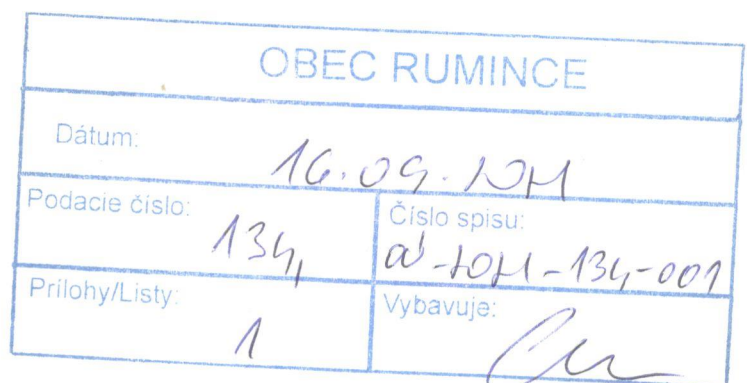 OBEC RUMINCE
Dátum:
16.09.
Podacie číslo:
134,
Číslo spisu:
-134-001
Prílohy/Listy:
1
Vybavuje: